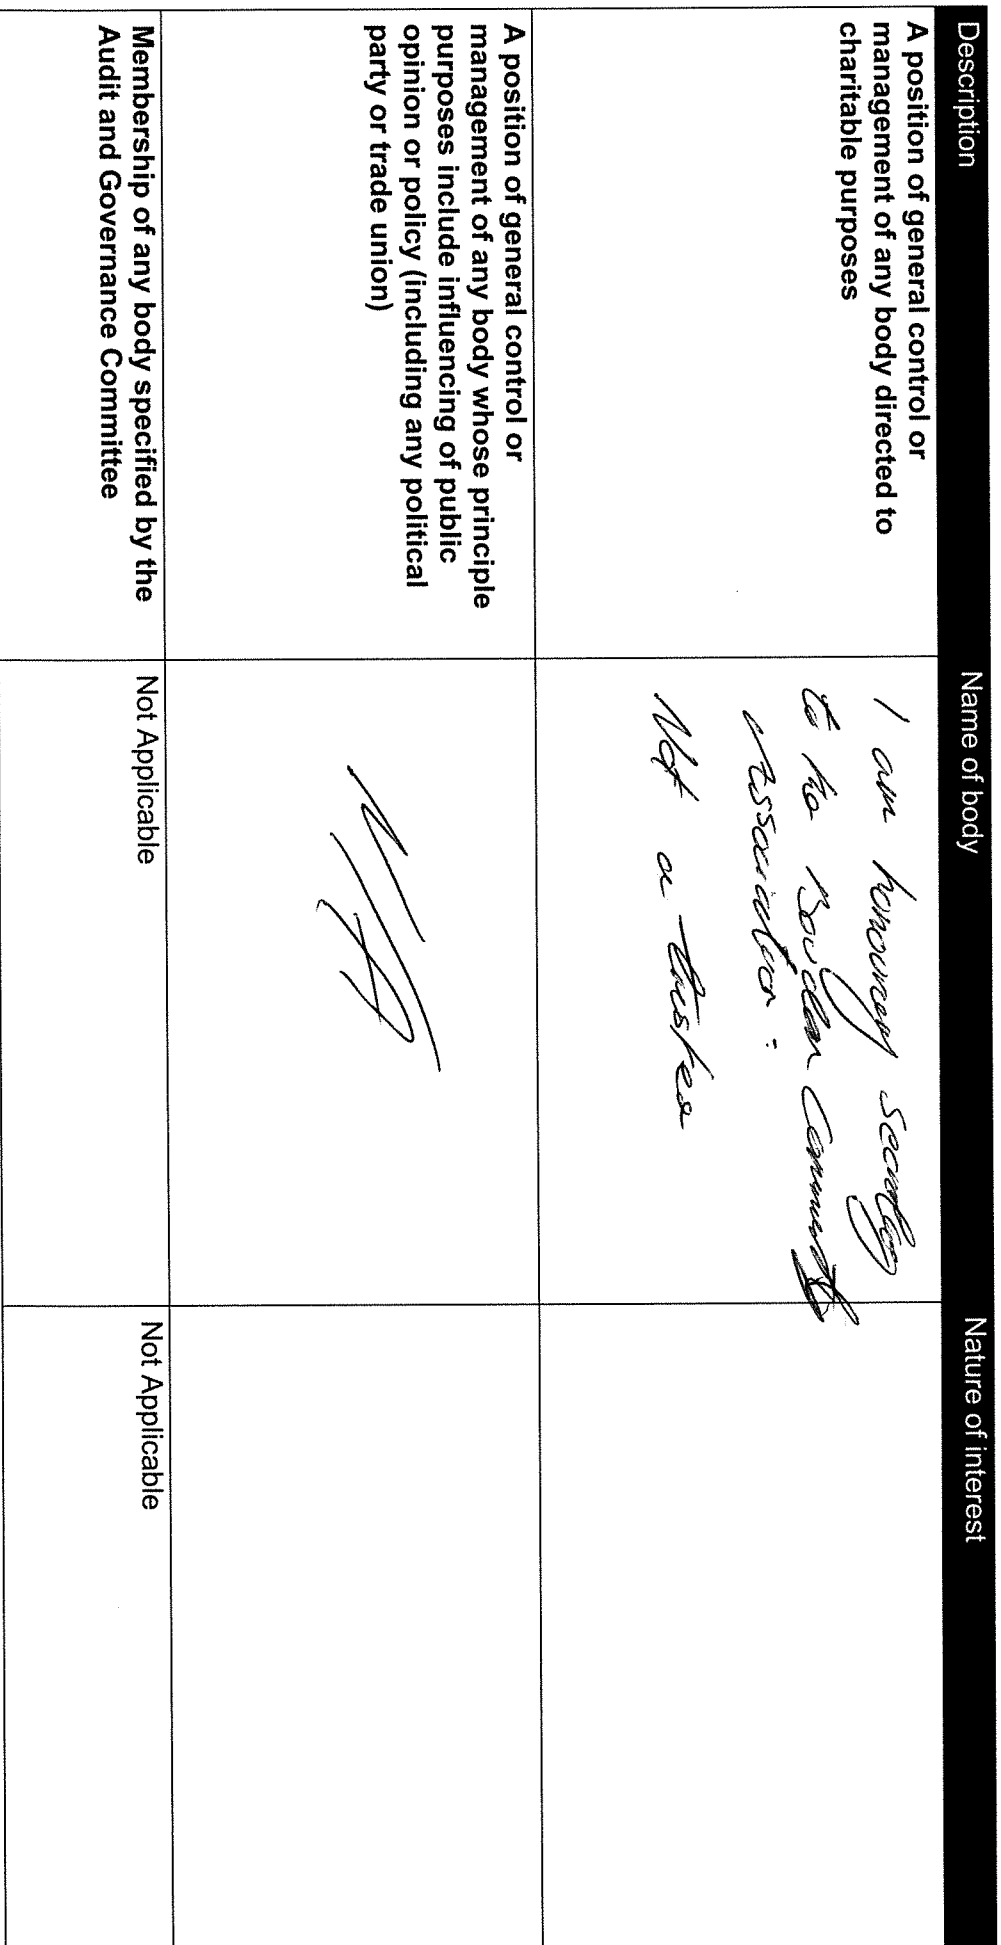 Description
Name of body
Nature of interest
A position of general control or
management of any body directed to
charitable purposes
I am honorary Secretary
to the Bowdon Community
Association :
Not a trustee
A position of general control or
management of any body whose principle
purposes include influencing of public
opinion or policy (including any political
party or trade union)
N/A
Membership of any body specified by the
Audit and Governance Committee
Not Applicable
Not Applicable